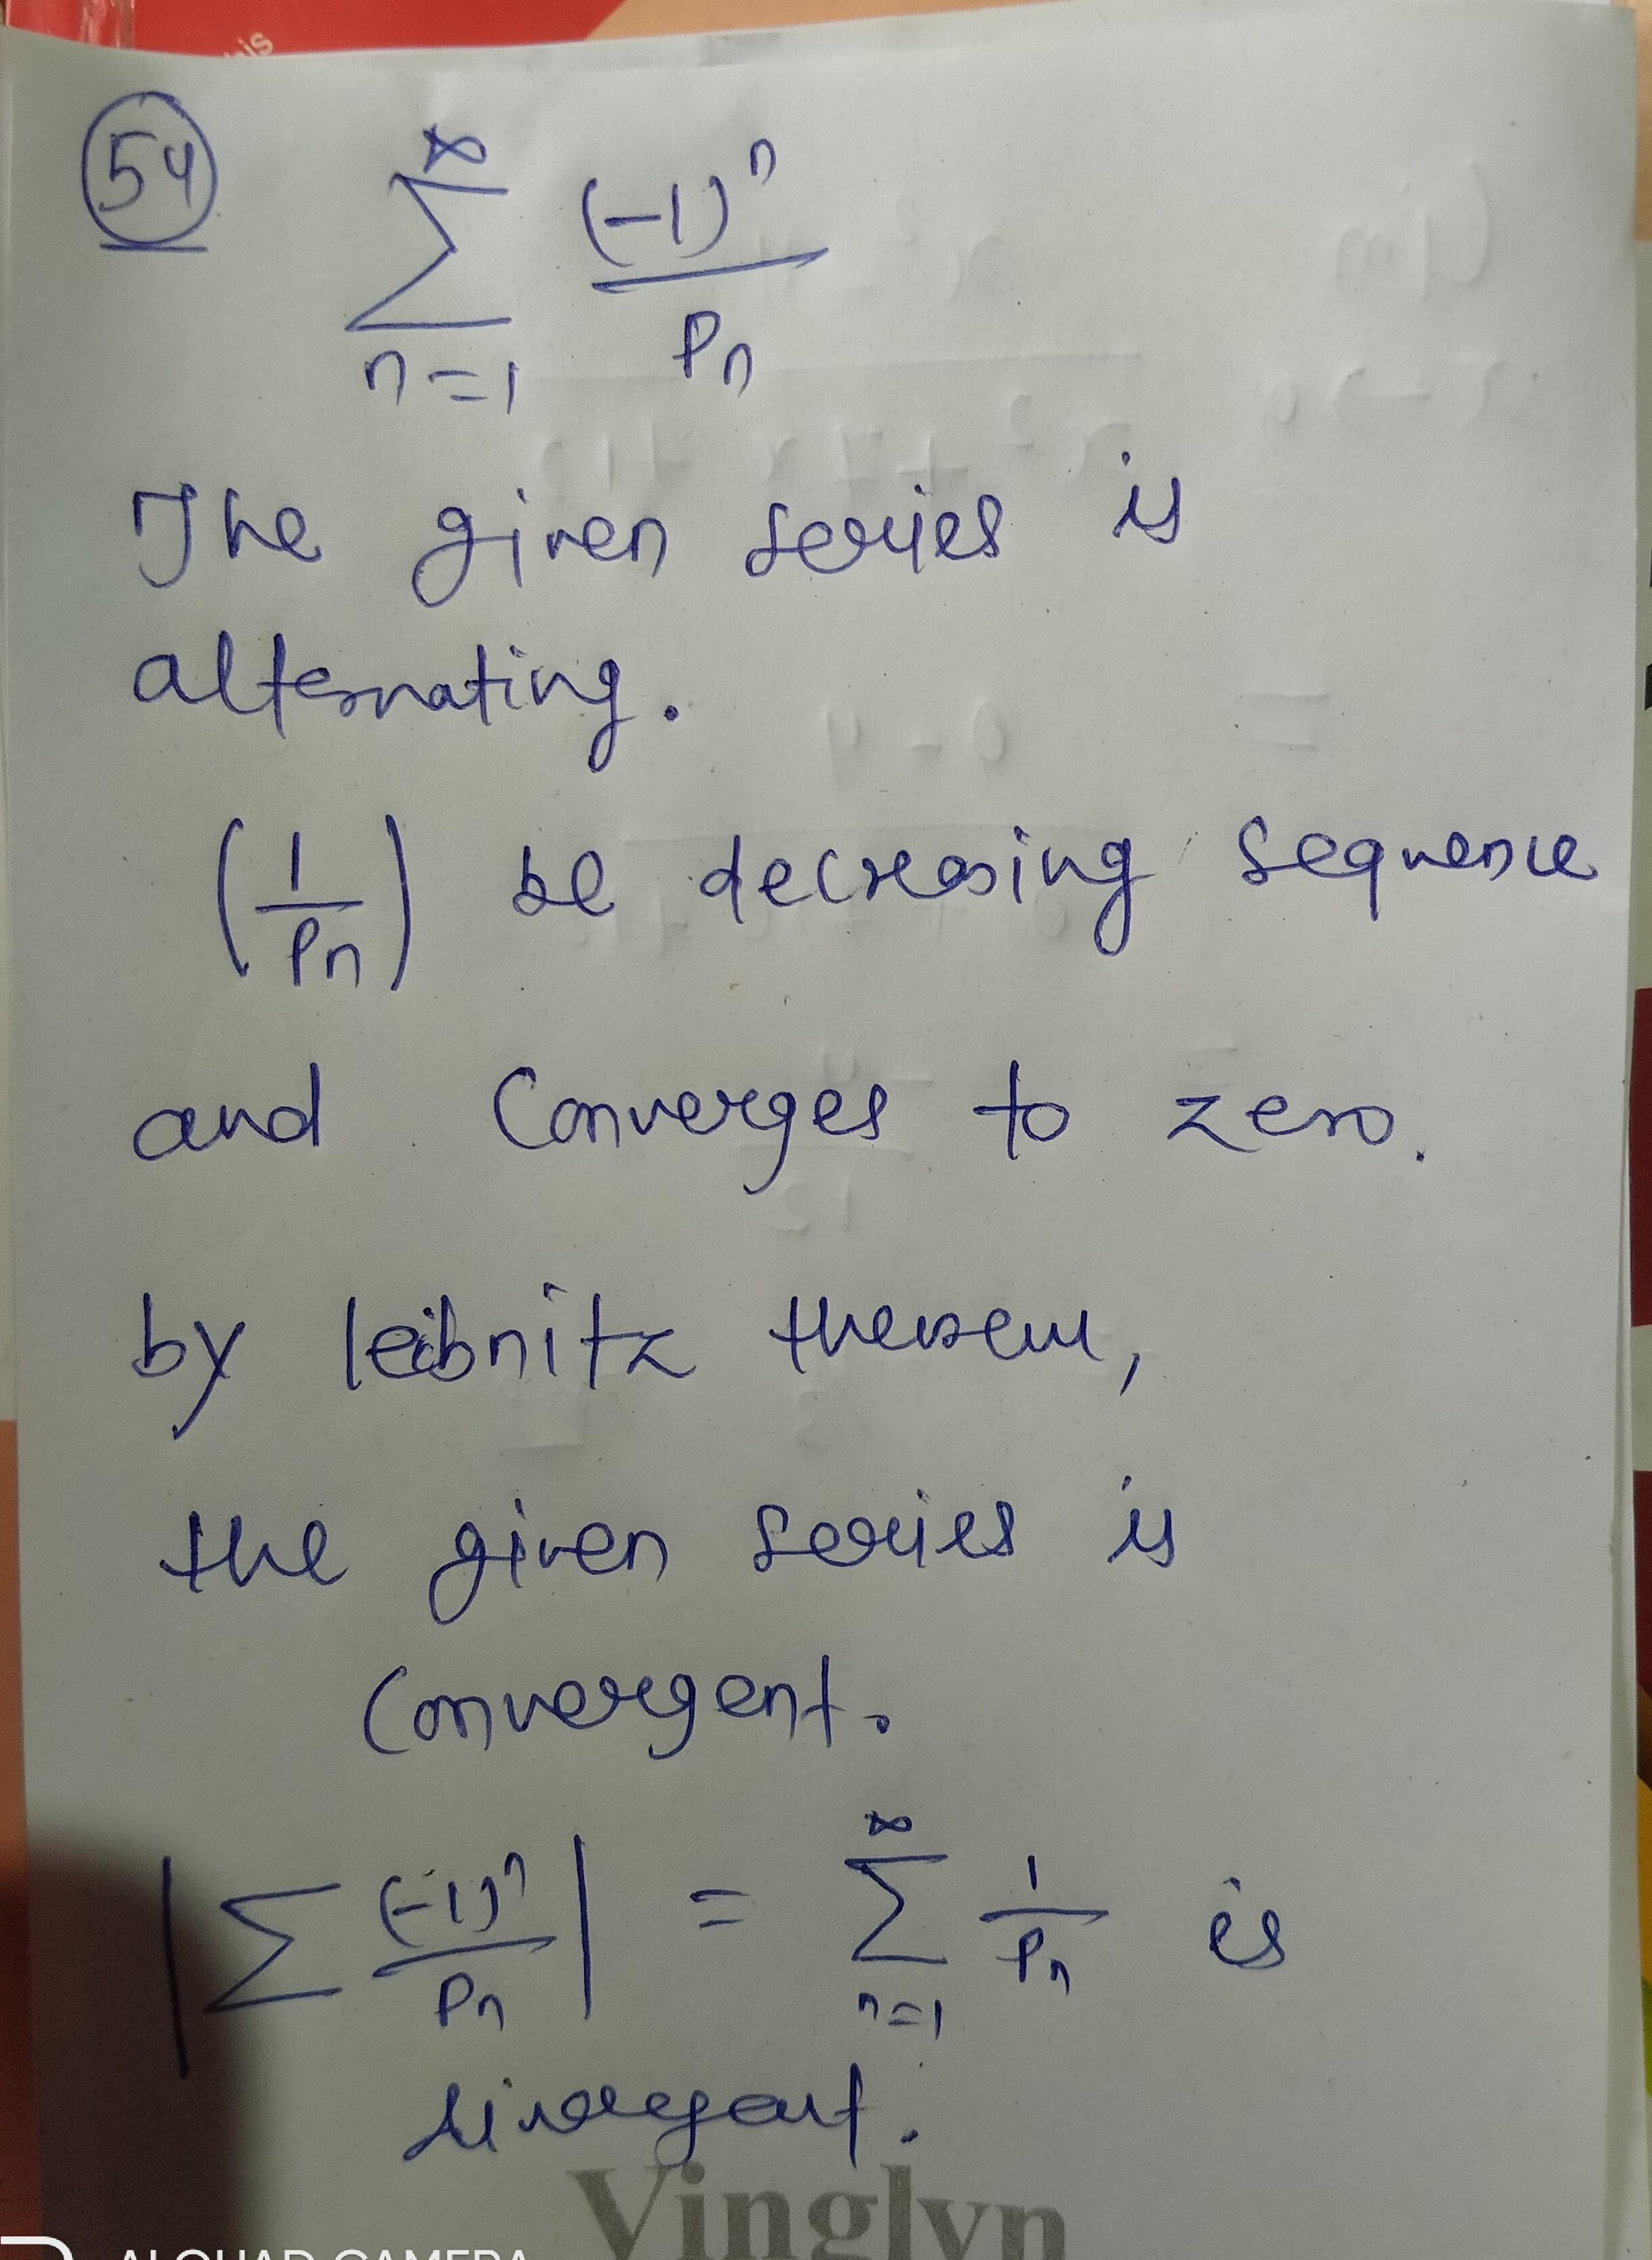 54 ∞ (-1)ⁿ
∑ ———
n=1 Pn
The given series is
alternating.
(1/Pn) be decreasing sequence
and Converges to zero.
by leibnitz theorem,
the given series is
Convergent.
|∑ (-1)ⁿ/Pn| = ∞∑n=1 1/Pn is
divergent.
Vinglyn
AI QUAD CAMERA